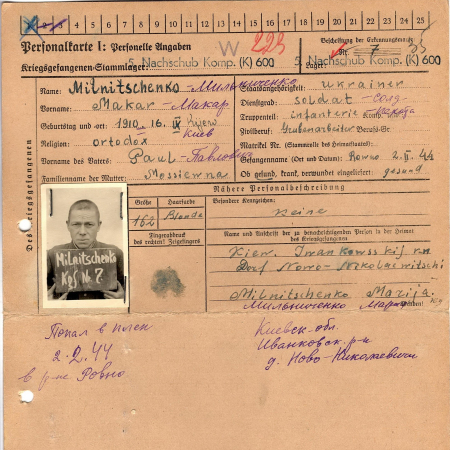 1 2 3 4 5 6 7 8 9 10 11 12 13 14 15 16 17 18 19 20 21 22 23 24 25
Personalkarte I: Personelle Angaben
Beschriftung der Erkennungsmarke
W 223
Nr. 7
Kriegsgefangenen-Stammlager:
5. Nachschub Komp. (K) 600
Lager: 5. Nachschub Komp. (K) 600
Des Kriegsgefangenen
Name: Milnitschenko-Мильниченко
Vorname: Makar-Макар
Geburtstag und -ort: 1910 16. IX Kijew
Киев
Religion: ortodox
Vorname des Vaters: Paul-Павлов
Familienname der Mutter: Mossierna
Staatsangehörigkeit: Ukrainer
Dienstgrad: soldat-солд
Truppenteil: infanterie-пехота
Zivilberuf: Grubenarbeiter Berufs-Gr.
Matrikel Nr. (Stammrolle des Heimatstaates):
Gefangennahme (Ort und Datum): Rowno 2. II. 44
Ob gesund, krank, verwundet eingeliefert: gesund
Nähere Personalbeschreibung
Größe
Haarfarbe
Besondere Kennzeichen:
162
Blonde
Keine
Fingerabdruck
des rechten! Zeigefingers
Name und Anschrift der zu benachrichtigenden Person in der Heimat
des Kriegsgefangenen
Kiew. Iwankowsskij r.n
Dorf Nowo-Nikolaewitschi
Milnitschenko Marija
Мильниченко Мария
Milnitschenko
Kgf № 7
Попал в плен
2.2.44
в р-не Ровно
Киевск-обл.
Иванковск. р-н
д. Ново-Николаевичи